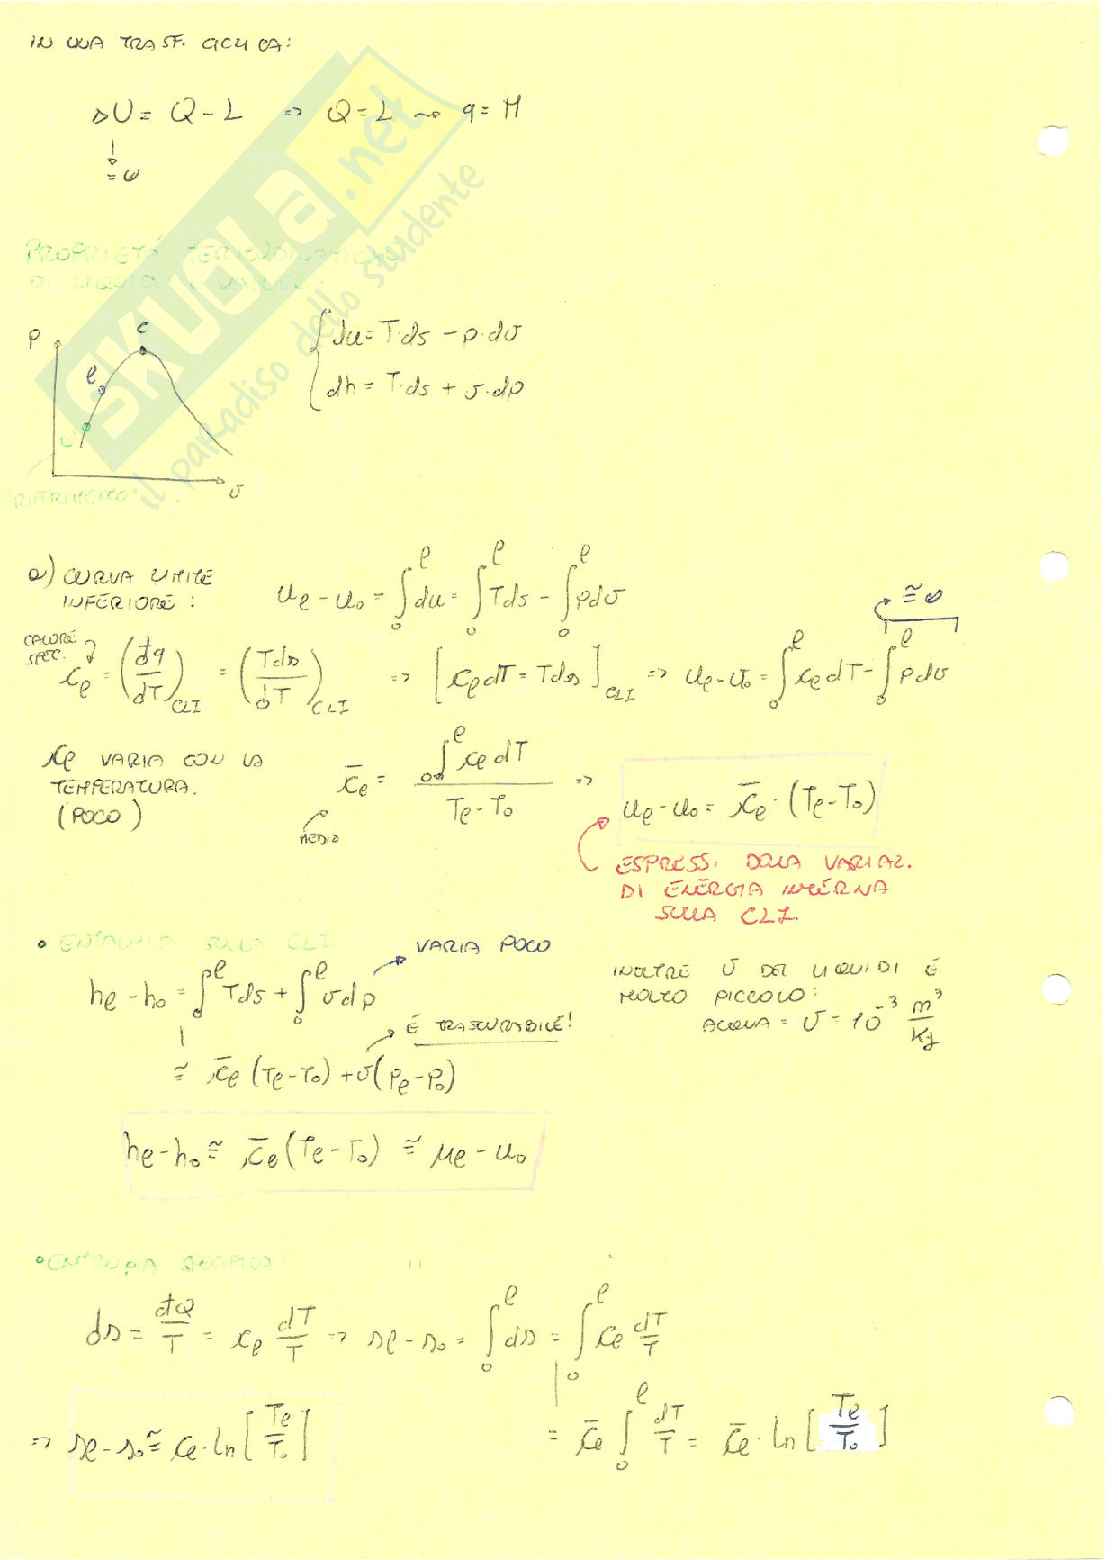 IN UNA TRASF. CICLICA:
ΔU = Q - L ⇒ Q = L ⇝ q = H
= 0
SKUOLA.net
il paradiso dello studente
PROPRIETÁ TERMODINAMICHE
P
C
ℓ
v
RIFERIMENTO
du = T·ds - p·dv
dh = T·ds + v·dp
a) CURVA LIMITE
INFERIORE:
uℓ - u₀ = ∫₀^ℓ du = ∫₀^ℓ Tds - ∫₀^ℓ pdv
≅ 0
CALORE
SPEC.
cℓ = (đq/dT)CLI = (Tds/dT)CLI ⇒ [cℓdT = Tds]CLI ⇒ uℓ - u₀ = ∫₀^ℓ cℓ dT - ∫₀^ℓ pdv
cℓ VARIA CON LA
TEMPERATURA.
(POCO)
c̄ℓ = ∫₀^ℓ cℓ dT / (Tℓ - T₀) ⇒
MEDIO
uℓ - u₀ = c̄ℓ · (Tℓ - T₀)
ESPRESS. DELLA VARIAZ.
DI ENERGIA INTERNA
SULLA CLI.
• ENTALPIA SULLA CLI
VARIA POCO
hℓ - h₀ = ∫₀^ℓ Tds + ∫₀^ℓ vdp
É TRASCURABILE!
≅ c̄ℓ (Tℓ - T₀) + v(pℓ - p₀)
INOLTRE v DEI LIQUIDI É
MOLTO PICCOLO:
ACQUA = v = 10⁻³ m³/Kg
hℓ - h₀ ≅ c̄ℓ (Tℓ - T₀) ≅ uℓ - u₀
• ENTROPIA
ds = đQ/T = cℓ dT/T ⇒ sℓ - s₀ = ∫₀^ℓ ds = ∫₀^ℓ cℓ dT/T
= c̄ℓ ∫₀^ℓ dT/T = c̄ℓ · ln[Tℓ/T₀]
⇒ sℓ - s₀ ≅ cℓ · ln[Tℓ/T₀]